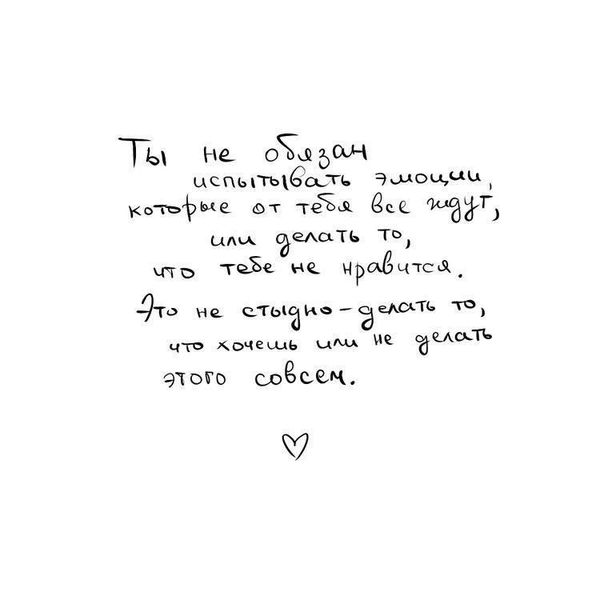 Ты не обязан
испытывать эмоции,
которые от тебя все ждут,
или делать то,
что тебе не нравится.
Это не стыдно – делать то,
что хочешь или не делать
этого совсем.